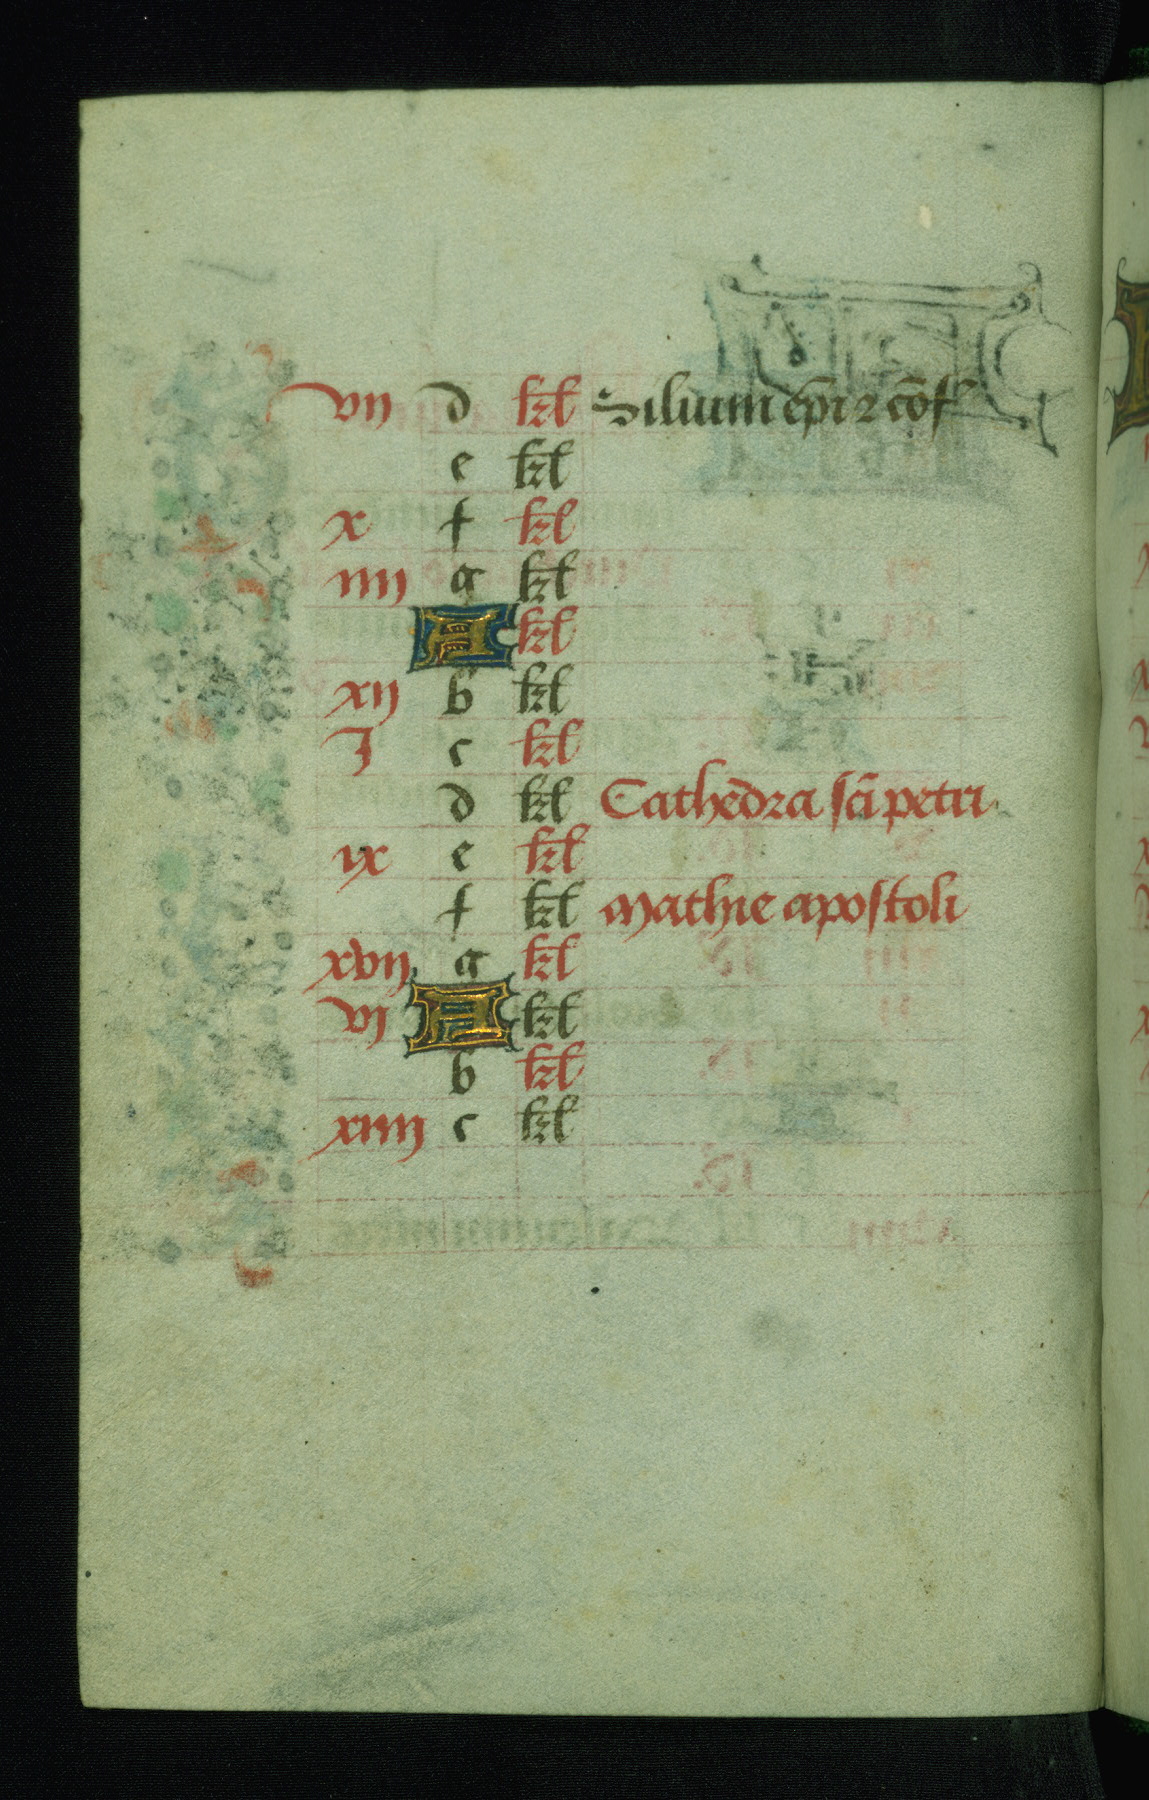 vij d kl Siluini ep̄i ⁊ cōf
e kl
x f kl
iiij g kl
A kl
xij b kl
J c kl
d kl Cathedra sc̄i petri
ix e kl
f kl Mathie apostoli
xvij g kl
vj A kl
b kl
xiiij c kl